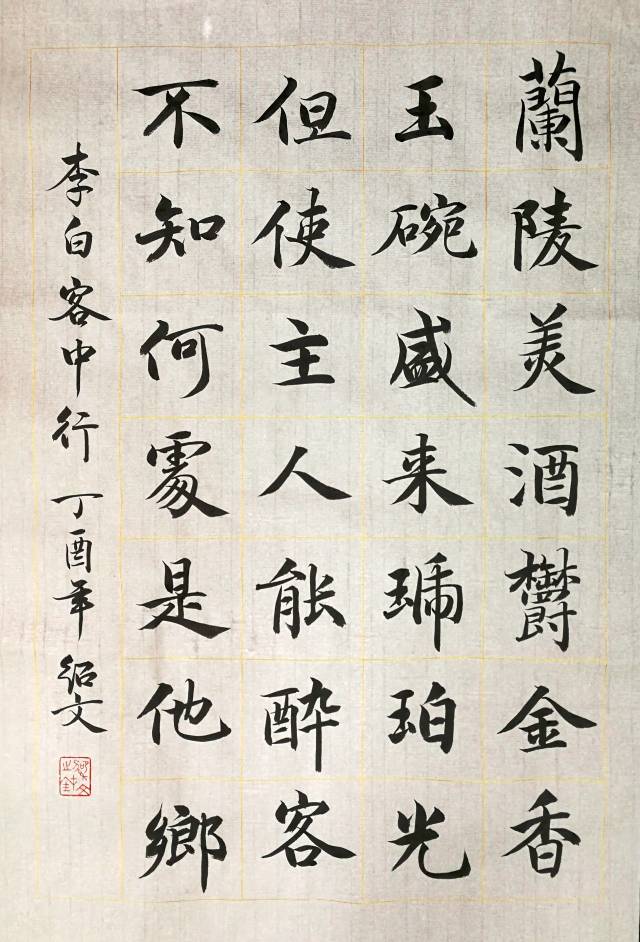 蘭陵美酒欝金香
玉碗盛来琥珀光
但使主人能醉客
不知何處是他鄉
李白客中行 丁酉年 紹文